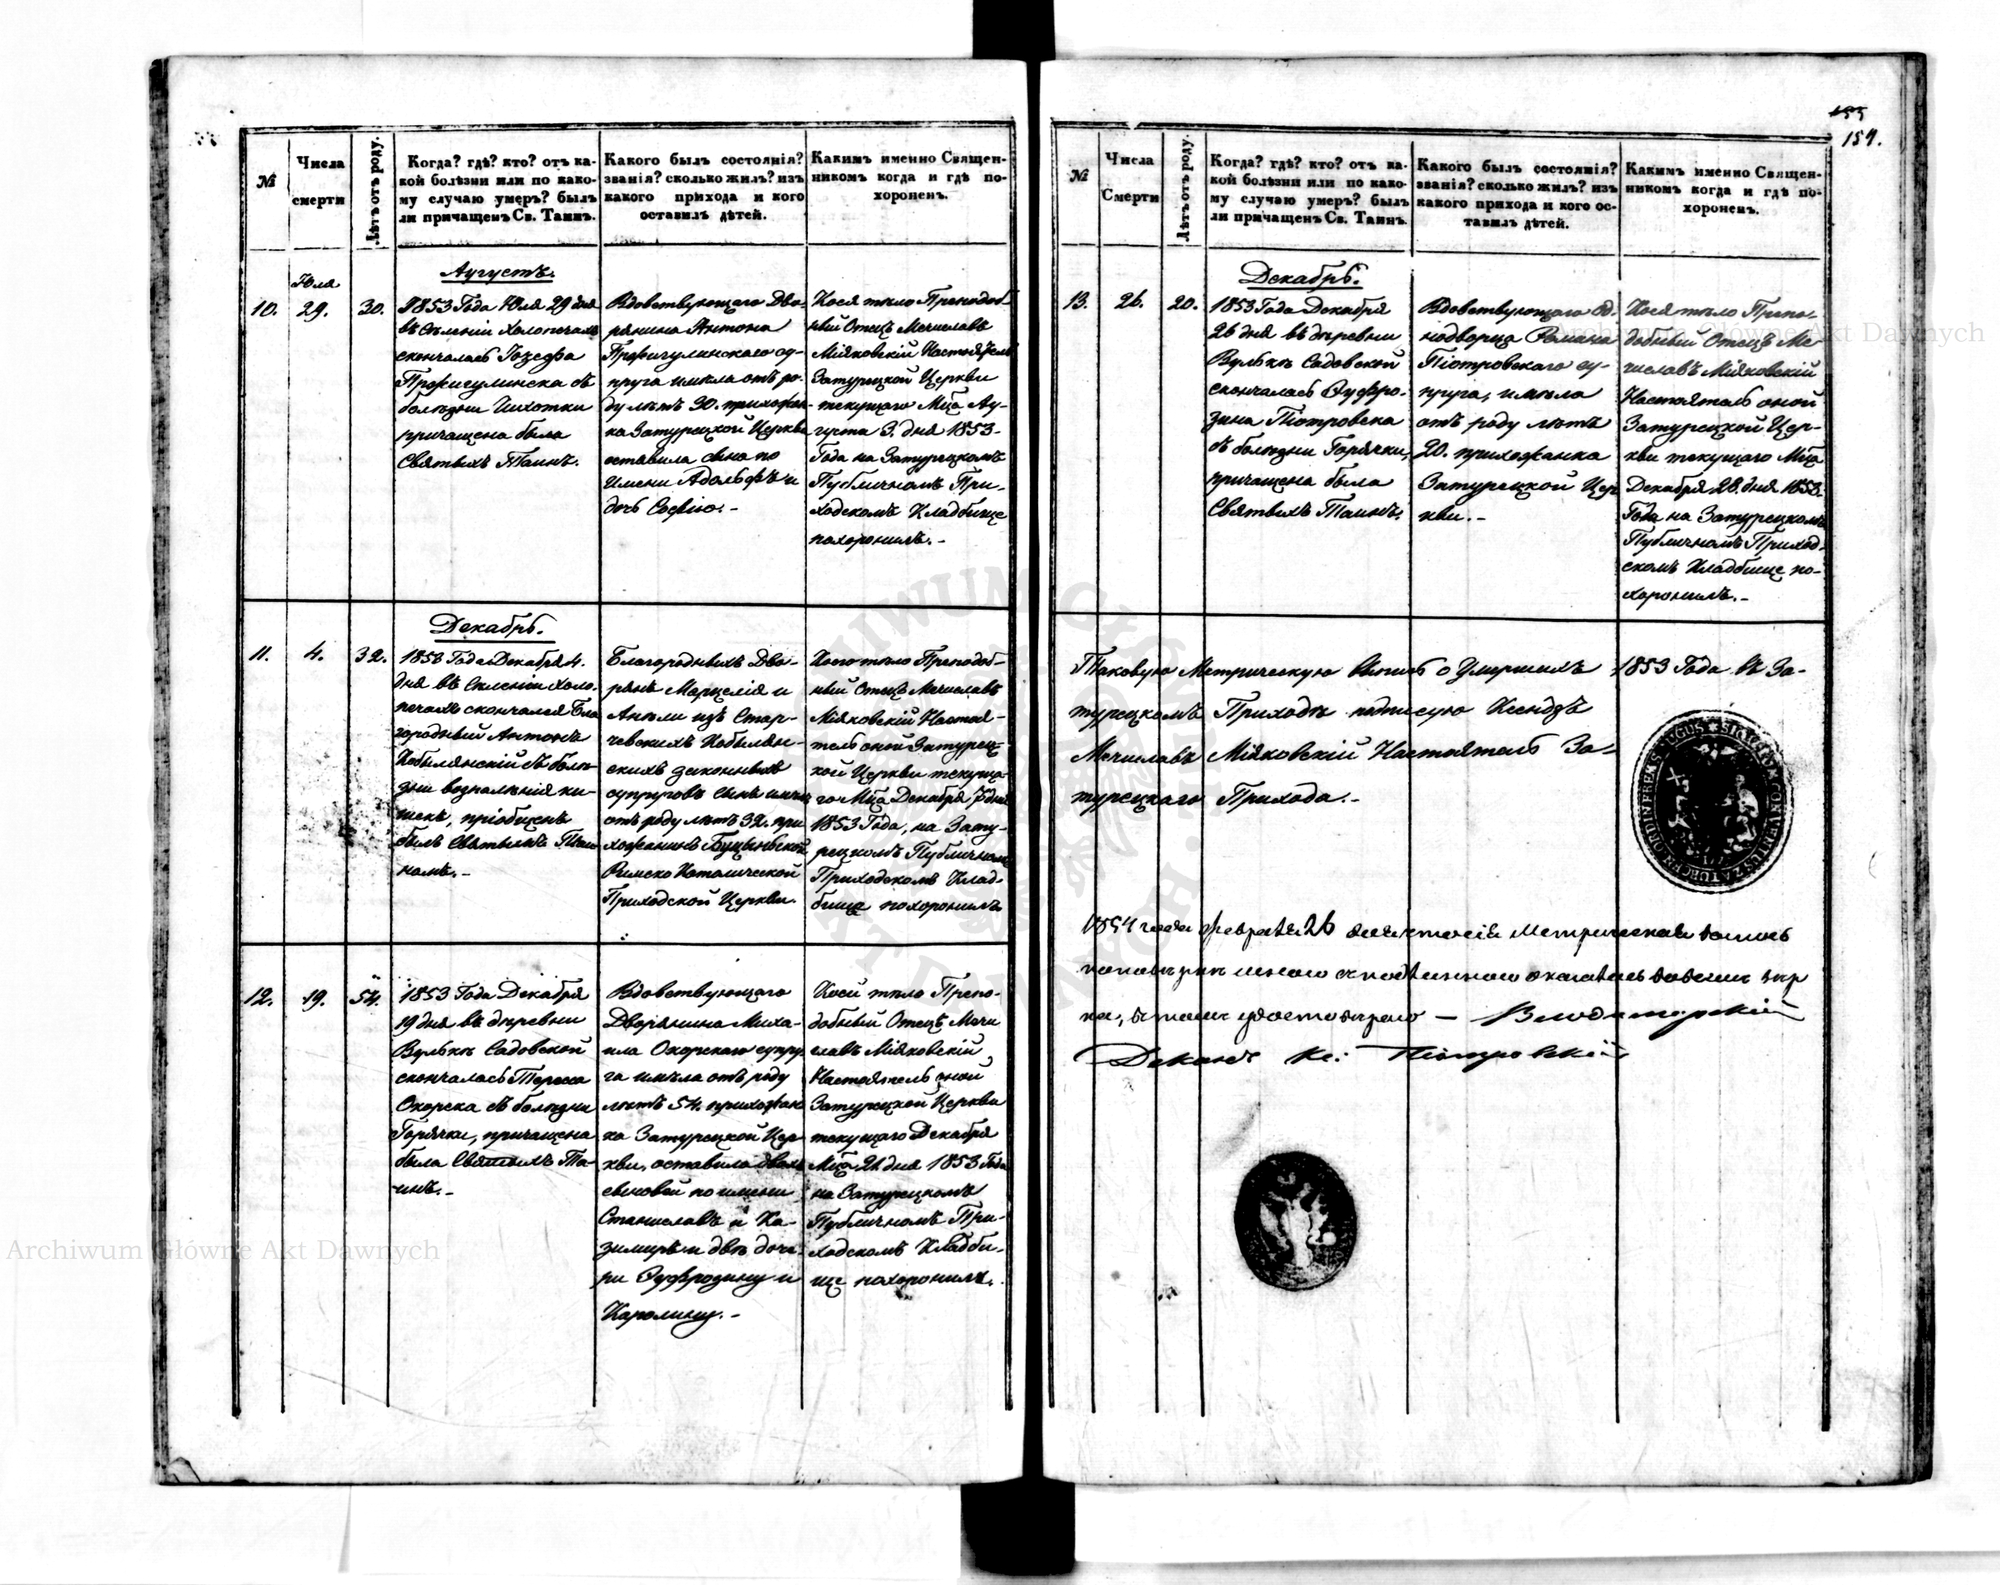 155
154.
№
Числа
смерти
Лѣтъ отъ роду.
Когда? гдѣ? кто? отъ ка-
кой болѣзни или по како-
му случаю умеръ? былъ
ли причащенъ Св. Таинъ.
Какого былъ состоянія?
званія? сколько жилъ? изъ
какого прихода и кого
оставилъ дѣтей.
Какимъ именно Священ-
никомъ когда и гдѣ по-
хороненъ.
Августъ.
Юля
10.
29.
30.
1853 Года Юля 29 дня
въ Сѣленіи Холопечахъ
скончалась Іозефа
болѣзни Чихотки
причащена была
Святыхъ Таинъ.
Вдовствующаго Дво-
рянина Антона
су-
пруга имѣла отъ ро-
ду лѣтъ 30. прихожан-
ка Затурецкой Церкви
оставила сына по
имени Адольфъ и
дочь Софію.-
Коея тѣло Преподоб-
ный Отецъ Мечиславъ
Міяковскій Настоятель
Затурецкой Церкви
текущаго Мца Ав-
густа 3. дня 1853
Года на Затурецкомъ
Публичномъ При-
ходскомъ Кладбище
похоронилъ.-
Декабрь.
11.
4.
32.
1853 Года Декабря 4.
дня въ Селеніи Холо-
печахъ скончался Бла
городный Антонъ
Кобылянскій съ болѣ-
зни воспаленія ки-
шекъ, пріобщенъ
былъ Святымъ Таи
намъ.-
Благородныхъ Дво-
рянъ Марцелія и
Анели изъ Стар-
чевскихъ Кобылян-
скихъ законныхъ
супруговъ сынъ имѣлъ
отъ роду лѣтъ 32. при
хожанинъ
Римско Католической
Приходской Церкви.
Коего тѣло Преподоб-
ный Отецъ Мечиславъ
Міяковскій Настоя-
тель оной Затурец-
кой Церкви текуща-
го Мца Декабря 7 дня
1853 Года, на Зату-
рецкомъ Публичномъ
Приходскомъ Клад-
бище похоронилъ
12.
19.
54.
1853 Года Декабря
19 дня въ деревни
Вулькѣ Садовской
скончалась Тереса
Окорска съ болѣзни
Горячки, причащена
была Святыхъ Та-
инъ.-
Вдовствующаго
Дворянина Миха-
ила Окорскаго супру
га имѣла отъ роду
лѣтъ 54. прихожан
ка Затурецкой Цер-
кви, оставила двохъ
сыновей по имени
Станиславъ и Ка-
зимиръ и двѣ доче-
ри Эуфрозину и
Каролину.-
Коей тѣло Препо-
добный Отецъ Мечи
славъ Міяковскій,
Настоятель оной
Затурецкой Церкви
текущаго Декабря
Мца 21 дня 1853 Года
на Затурецкомъ
Публичномъ При-
ходскомъ Кладби-
ще похоронилъ.
№
Числа
Смерти
Лѣтъ отъ роду.
Когда? гдѣ? кто? отъ ка-
кой болѣзни или по како-
му случаю умеръ? былъ
ли причащенъ Св. Таинъ.
Какого былъ состоянія?
званія? сколько жилъ? изъ
какого прихода и кого ос-
тавилъ дѣтей.
Какимъ именно Священ-
никомъ когда и гдѣ по-
хороненъ.
Декабрь.
13.
26.
20.
1853 Года Декабря
26 дня въ деревни
Вулькѣ Садовской
скончалась Эуфро-
зина Піотровска
съ болѣзни Горячки,
причащена была
Святыхъ Таинъ.
Вдовствующаго од-
нодворца Романа
Піотровскаго су-
пруга, имѣла
отъ роду лѣтъ
20. прихожанка
Затурецкой Цер
кви.-
Коея тѣло Препо-
добный Отецъ Ме-
числавъ Міяковскій
Настоятель оной
Затурецкой Цер-
кви текущаго Мца
Декабря 28. дня 1853.
Года на Затурецкомъ
Публичномъ Приход-
скомъ Кладбище по-
хоронилъ.-
Таковую Метрическую Выпись о Умершихъ 1853 Года въ За-
турецкомъ Приходѣ подписую Ксендзъ
Мечиславъ Міяковскій Настоятель За-
турецкаго Прихода.-
1854 года февраля 26 дня сія Метрическая выпись
Деканъ Кс: Піотровскій
Archiwum Główne Akt Dawnych
Archiwum Główne Akt Dawnych